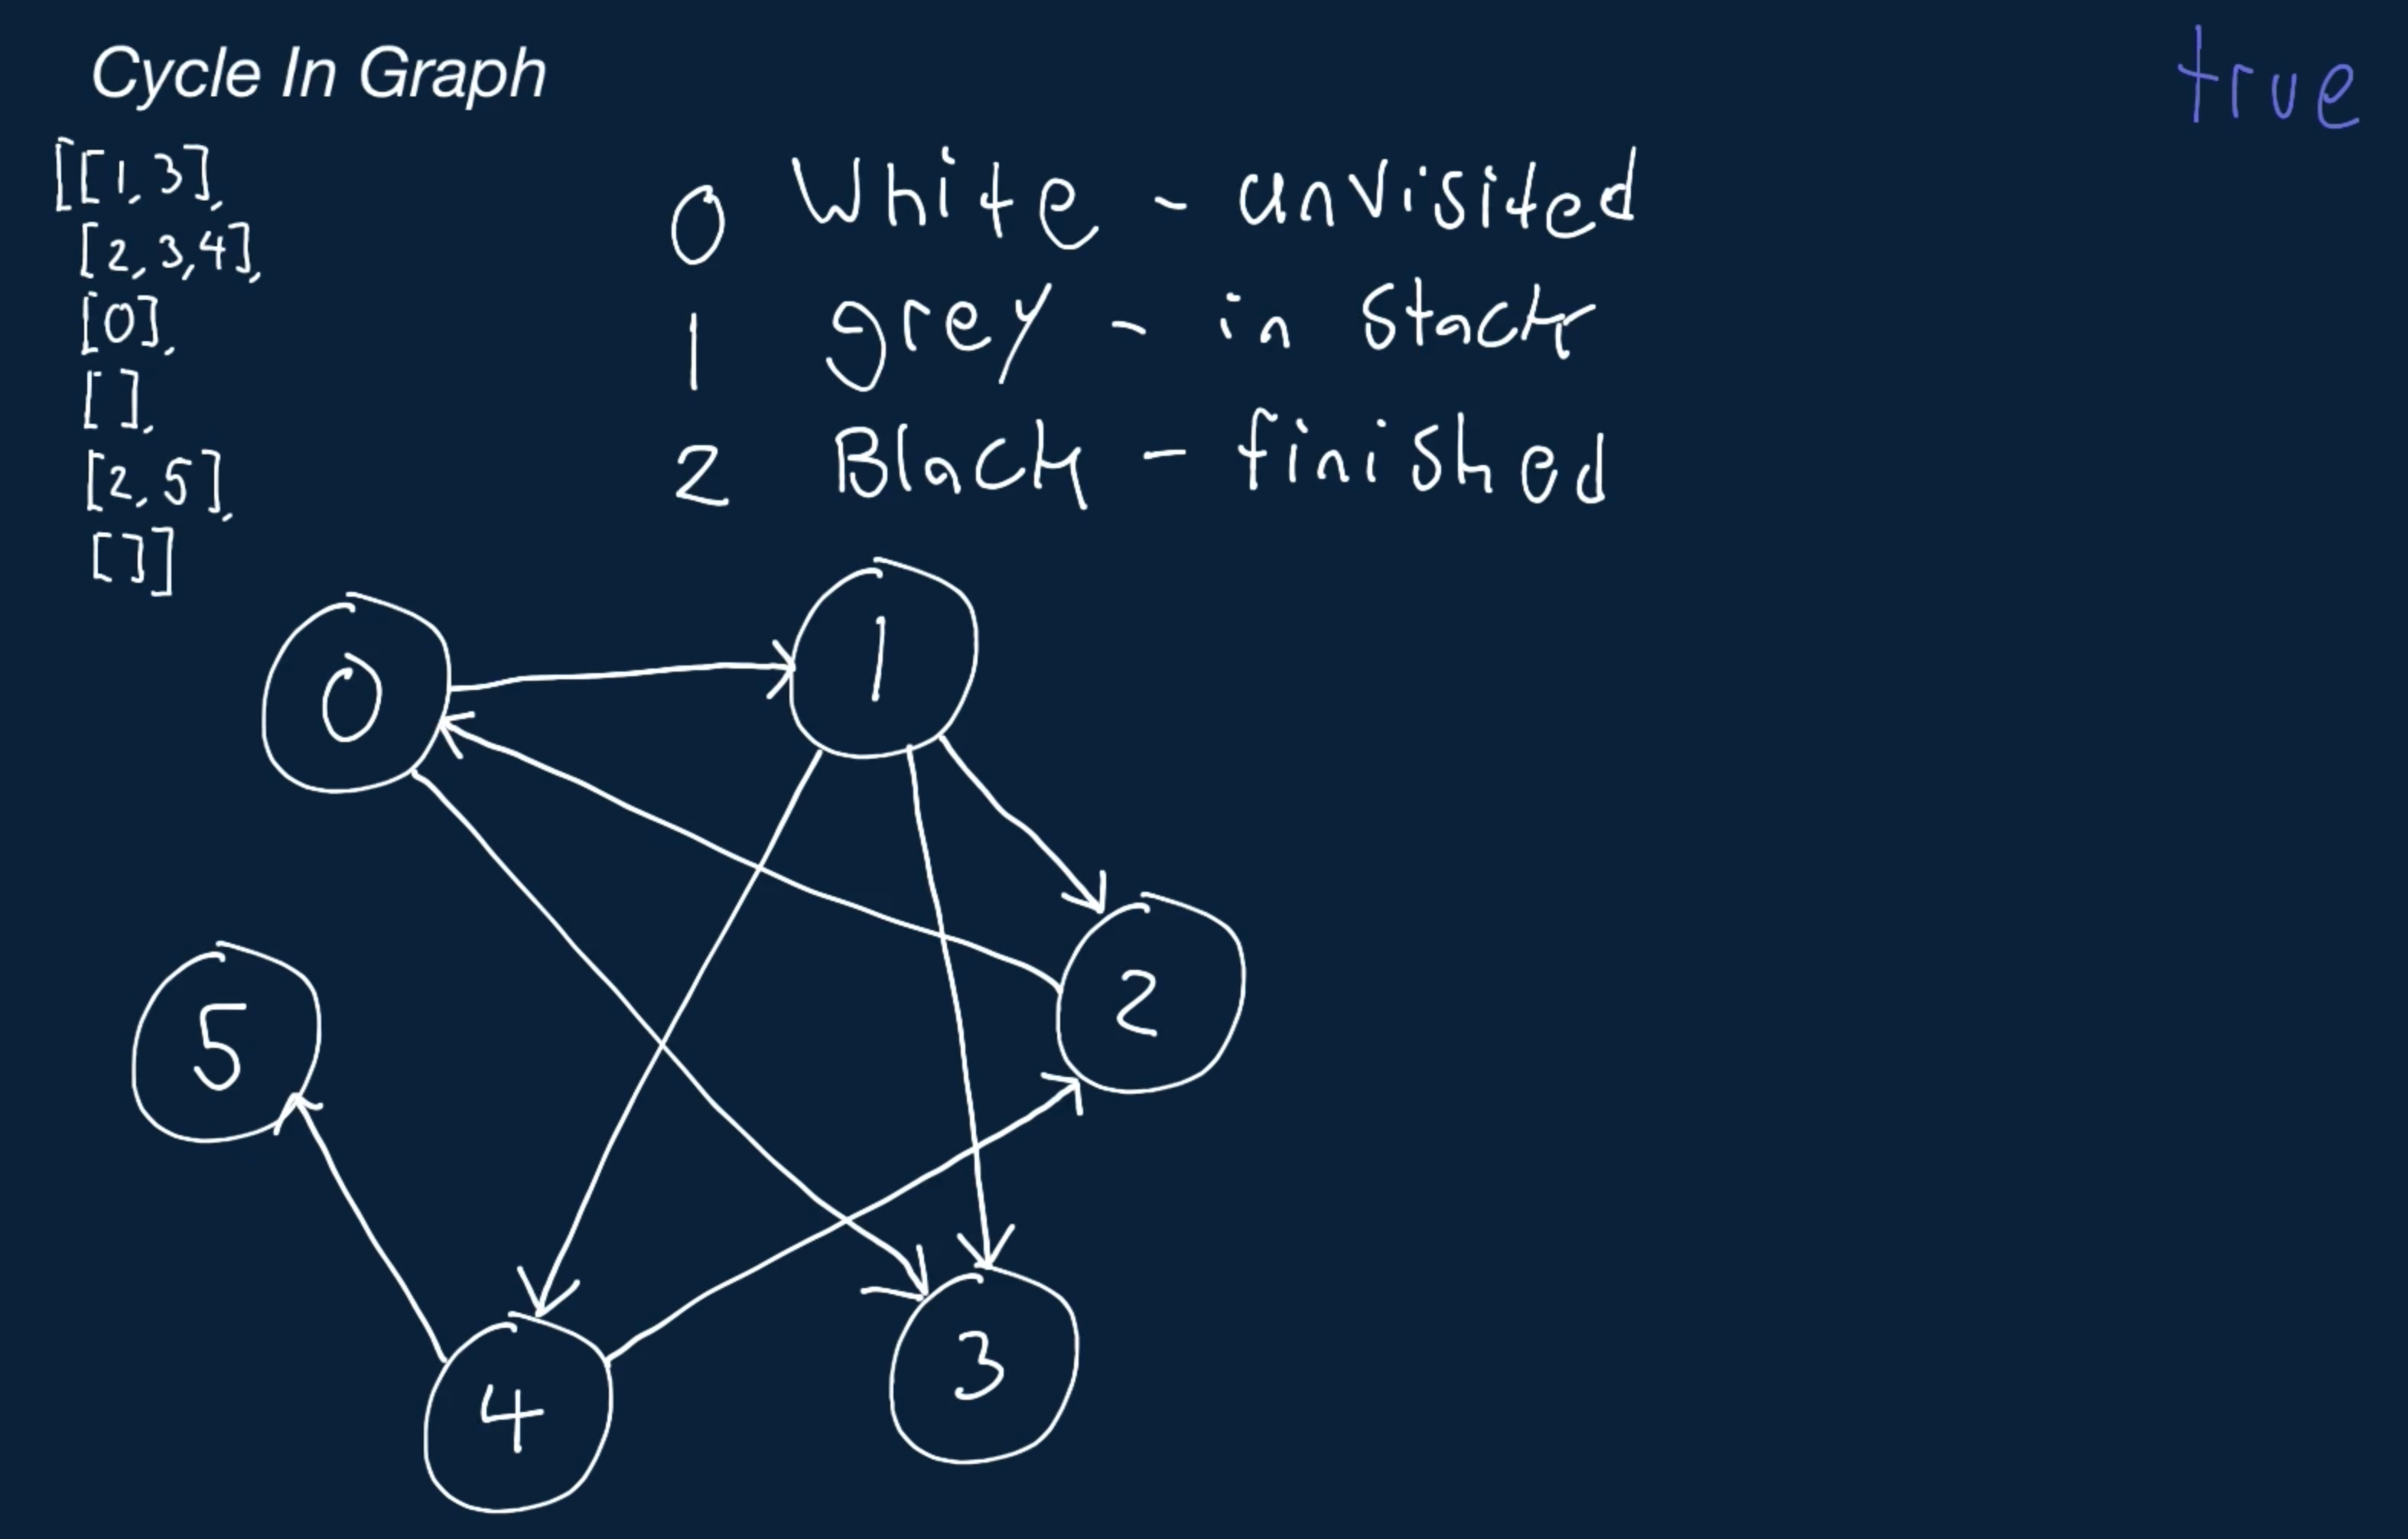 Cycle In Graph
true
[[1,3],
[2,3,4],
[0],
[],
[2,5],
[]]
0 White - unvisited
1 grey - in stack
2 Black - finished
0
1
2
5
3
4